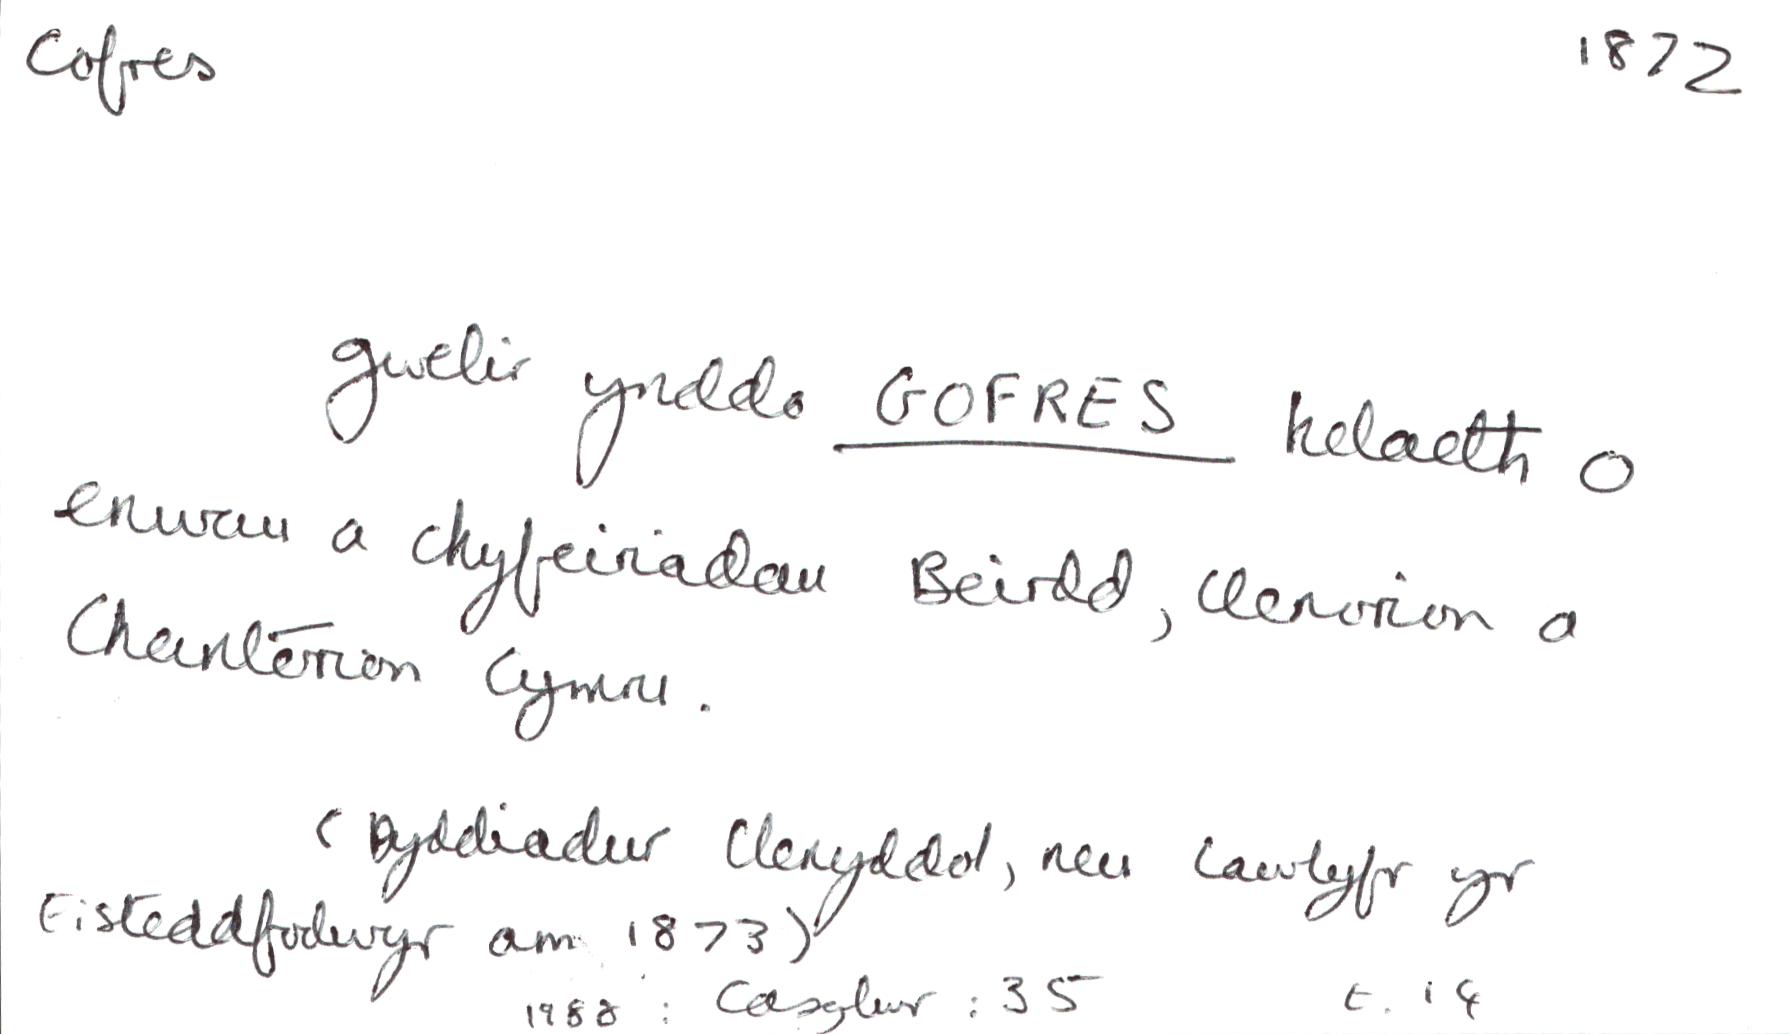 Cofres 1872
gwelir ynddo GOFRES helaeth o
enwau a chyfeiriadau Beirdd, Llenorion a
Chantorion Cymru.
(Dyddiadur Llenyddol, neu Lawlyfr yr
Eisteddfodwyr am 1873)
1988 : Casglwr : 35 t. 14